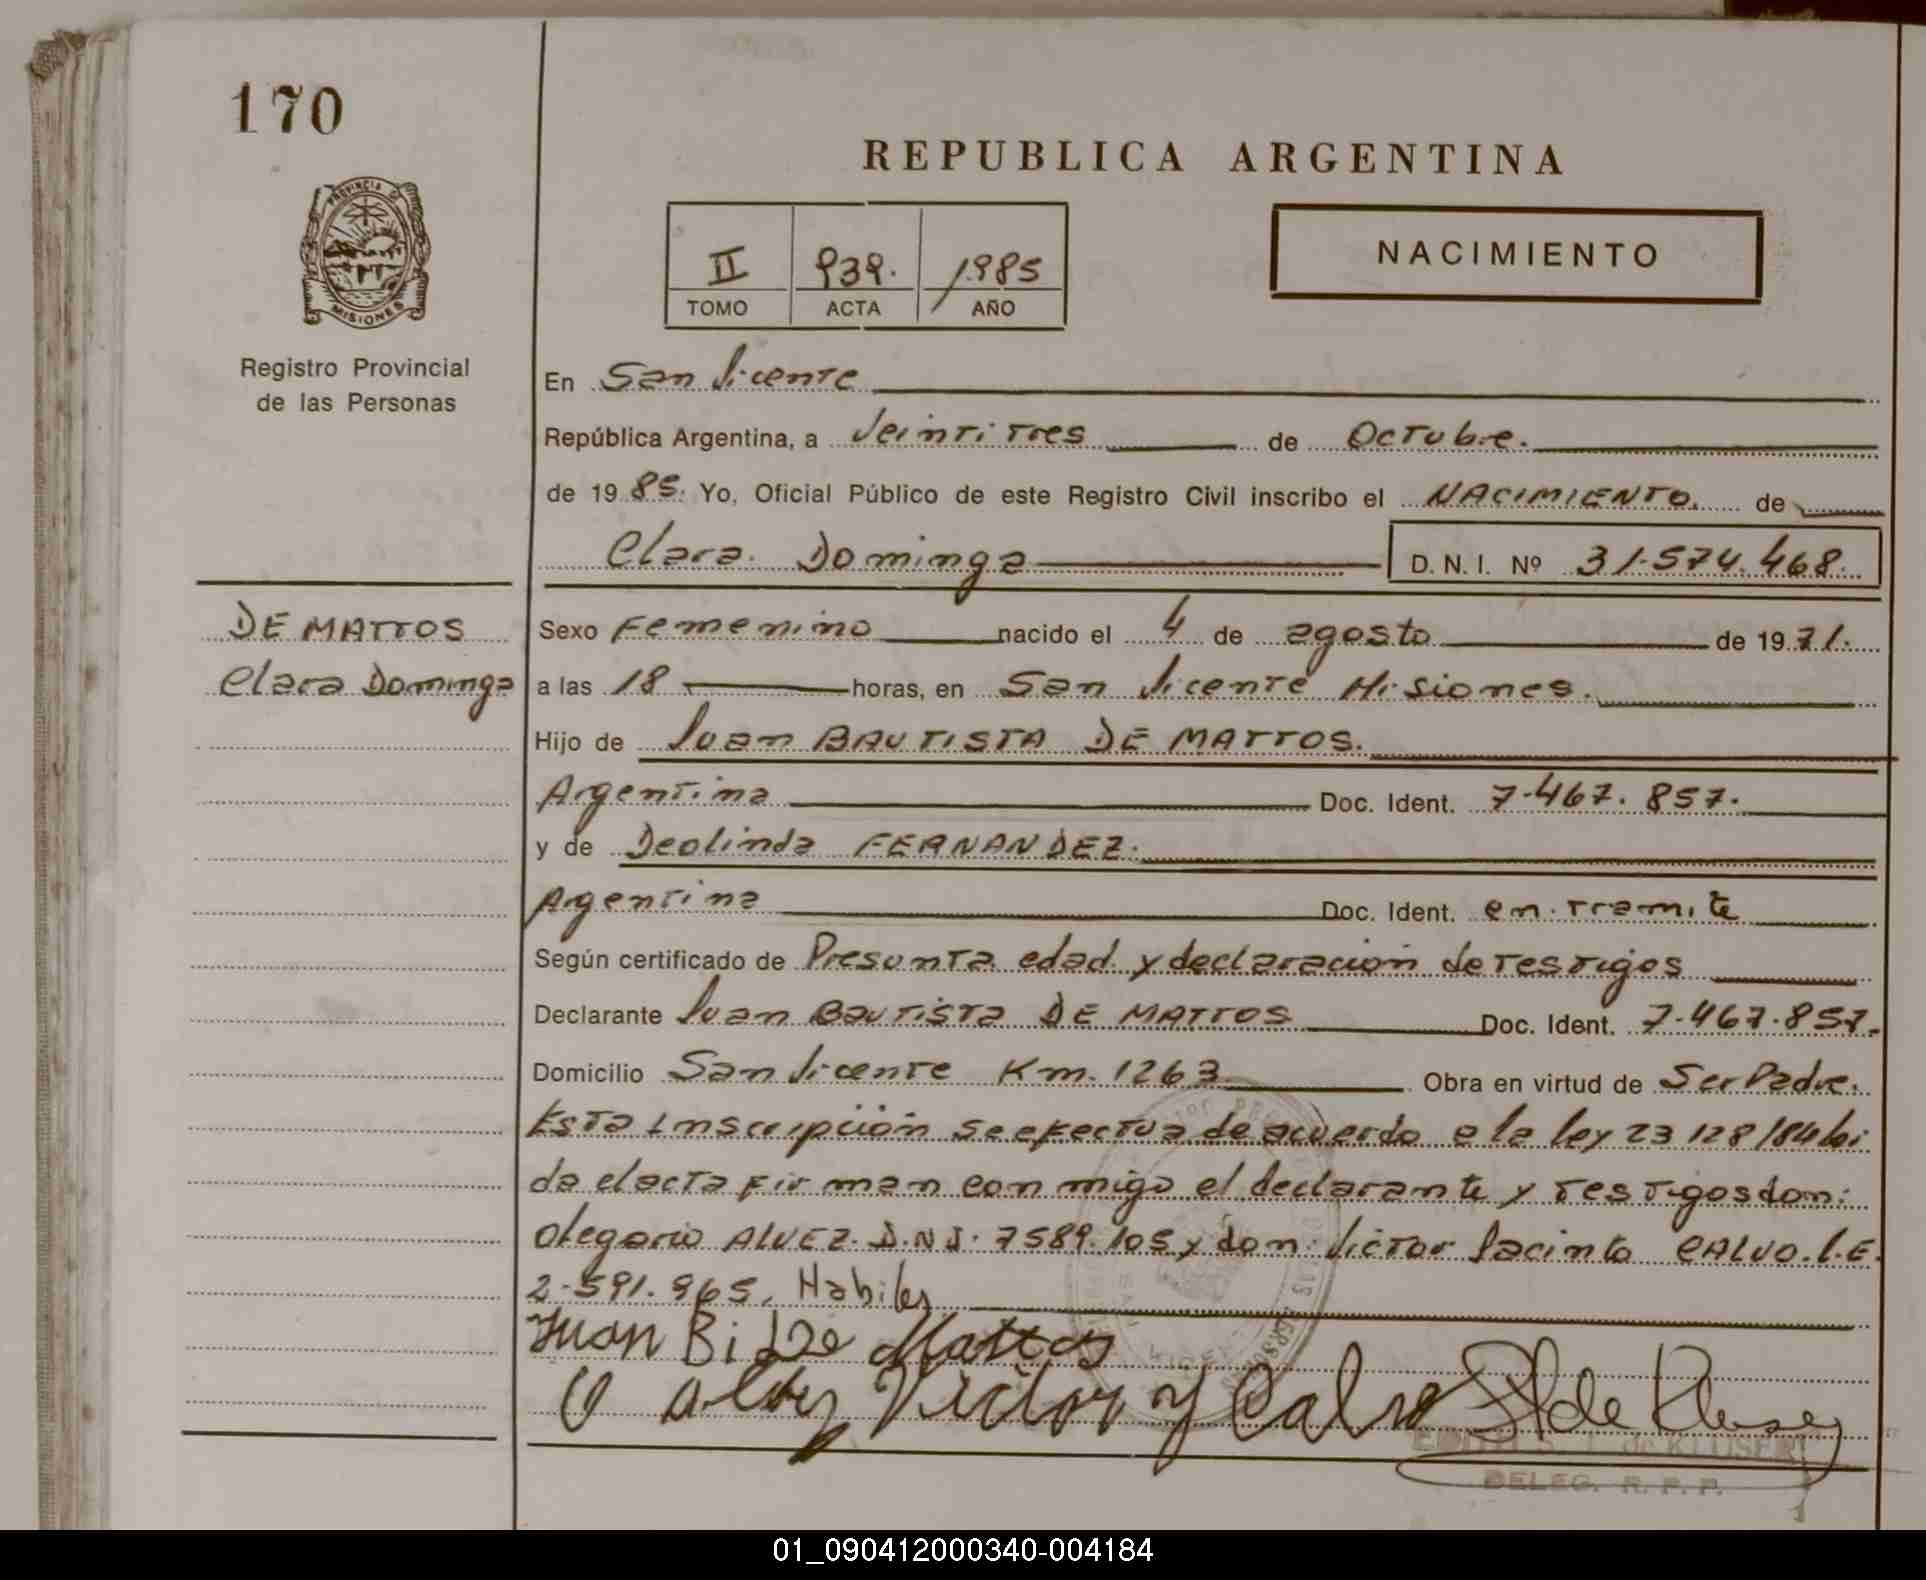 170
REPUBLICA ARGENTINA
PROVINCIA DE
MISIONES
II 939. 1985
TOMO ACTA AÑO
NACIMIENTO
Registro Provincial
de las Personas
En San Vicente
República Argentina, a Veintitres de Octubre.
de 1985. Yo, Oficial Público de este Registro Civil inscribo el NACIMIENTO. de
Clara Dominga D. N. I. Nº 31.574.468.
DE MATTOS
Clara Dominga
Sexo Femenino nacido el 4 de agosto de 1971.
a las 18 horas, en San Vicente Misiones.
Hijo de Juan BAUTISTA DE MATTOS.
Argentina Doc. Ident. 7.467.857.
y de Deolinda FERNANDEZ.
Argentina Doc. Ident. en tramite
Según certificado de Presunta edad y declaracion de testigos
Declarante Juan Bautista DE MATTOS Doc. Ident. 7.467.857.
Domicilio San Vicente Km. 1263 Obra en virtud de Ser Padre.
Esta inscripción se efectua de acuerdo a la ley 23128/84 lei
da el acta firman conmigo el declarante y testigos don:
Olegario ALVEZ. D.N.I. 7589.105 y don: Victor Jacinto CALVO. L.E.
2.591.965. Habiles
Juan B. De Mattos
O Alvez Victor J Calvo de Kluser
EDITH S. T. de KLUSER
DELEG. R. P. P.
01_090412000340-004184